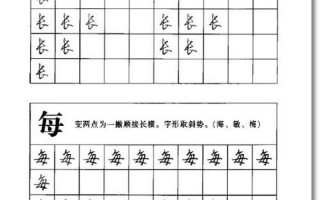 长 长 长 长 长 长
长 长 长 长
长
每 变两点为一撇顺接长横。字形取斜势。(海、敏、梅)
每 每 每 每 每 每 每 每 每 每
每